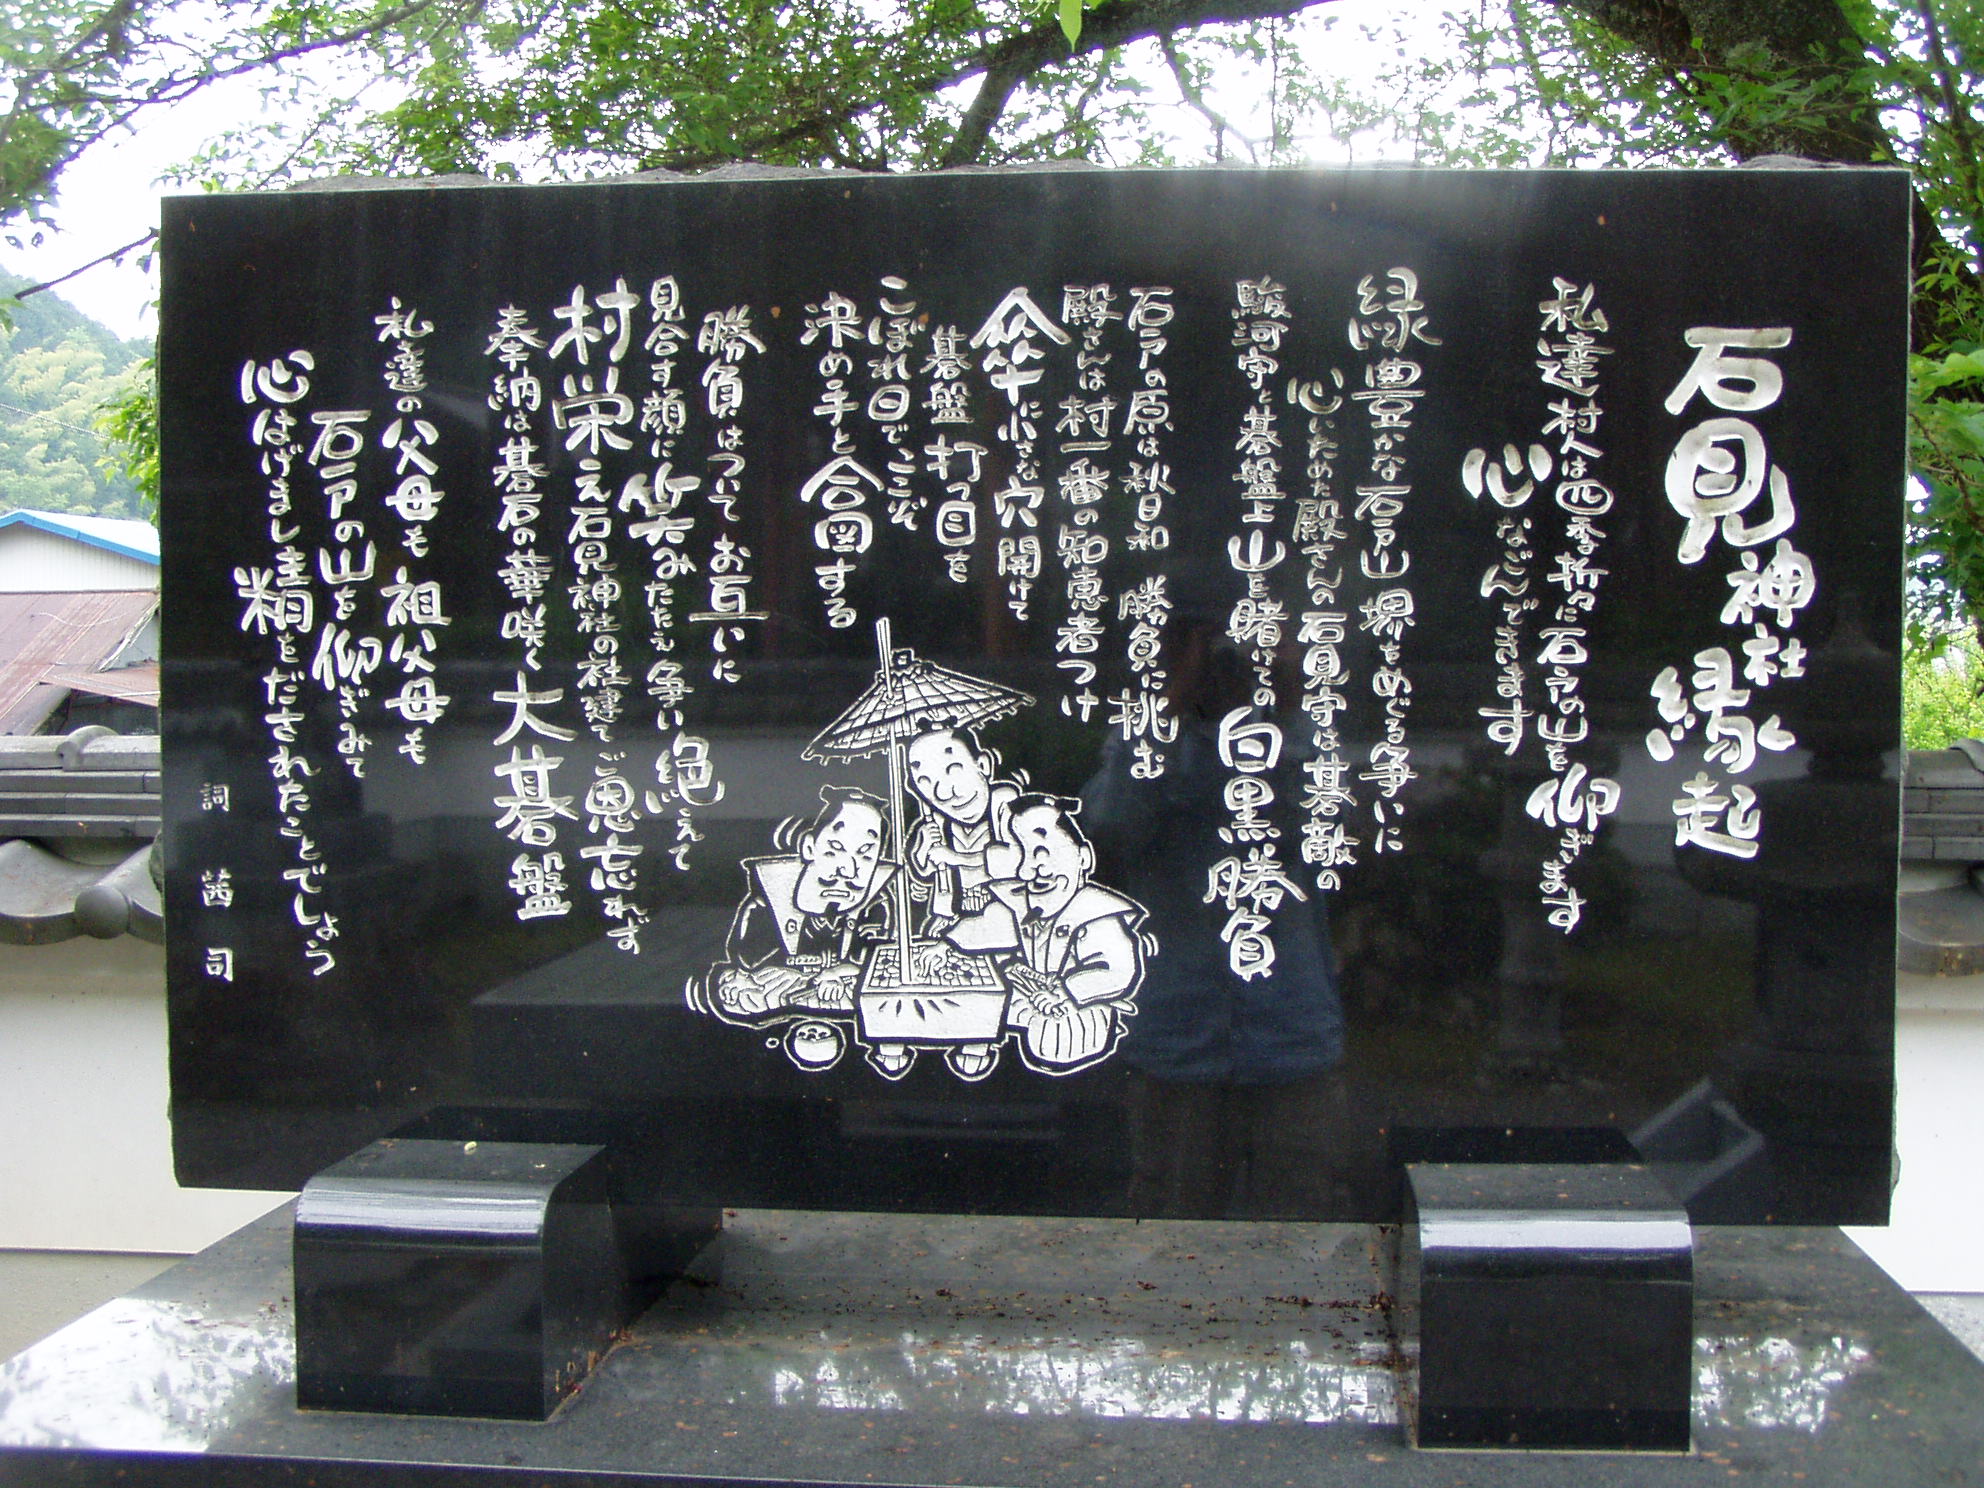 石見神社縁起
私達村人は四季折々に石戸の山を仰ぎます
心なごんできます
緑豊かな石戸山堺をめぐる争いに
心いためた殿さんの石見守は碁敵の
駿河守と碁盤上山を賭けての白黒勝負
石戸の原は秋日和 勝負に挑む
殿さんは村一番の知恵者つけ
傘に小さな穴開けて
碁盤打つ目を
こぼれ日でここぞ
決め手と合図する
勝負はついてお互いに
見合す顔に笑みたたえ争い絶えて
村栄え石見神社の社建てご恩忘れず
奉納は碁石の華咲く大碁盤
私達の父母も祖父母も
石戸の山を仰ぎみて
心はげまし精をだされたことでしょう
詞 茜 司